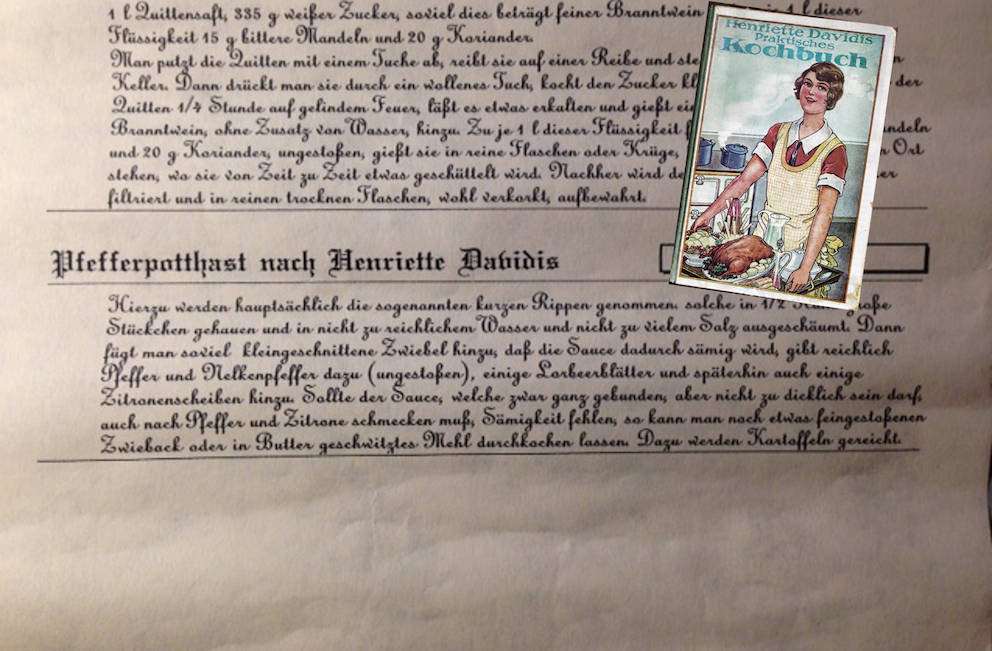 1 l Quittensaft, 335 g weißer Zucker, soviel dies beträgt feiner Branntwein 1 l dieser
Flüssigkeit 15 g bittere Mandeln und 20 g Koriander.
Man putzt die Quitten mit einem Tuche ab, reibt sie auf einer Reibe und
Keller. Dann drückt man sie durch ein wollenes Tuch, kocht den Zucker der
Quitten 1/4 Stunde auf gelindem Feuer, läßt es etwas erkalten und gießt
Branntwein, ohne Zusatz von Wasser, hinzu. Zu je 1 l dieser Flüssigkeit
und 20 g Koriander, ungestoßen, gießt sie in reine Flaschen oder Krüge, Ort
stehen, wo sie von Zeit zu Zeit etwas geschüttelt wird. Nachher wird
filtriert und in reinen trocknen Flaschen, wohl verkorkt, aufbewahrt.
Henriette Davidis
Praktisches
Kochbuch
Pfefferpotthast nach Henriette Davidis
Hierzu werden hauptsächlich die sogenannten kurzen Rippen genommen. solche in 1/2
Stückchen gehauen und in nicht zu reichlichem Wasser und nicht zu vielem Salz ausgeschäumt. Dann
fügt man soviel kleingeschnittene Zwiebel hinzu, daß die Sauce dadurch sämig wird, gibt reichlich
Pfeffer und Nelkenpfeffer dazu (ungestoßen), einige Lorbeerblätter und späterhin auch einige
Zitronenscheiben hinzu. Sollte der Sauce, welche zwar ganz gebunden, aber nicht zu dicklich sein darf,
auch nach Pfeffer und Zitrone schmecken muß, Sämigkeit fehlen, so kann man noch etwas feingestoßenen
Zwieback oder in Butter geschwitztes Mehl durchkochen lassen. Dazu werden Kartoffeln gereicht.